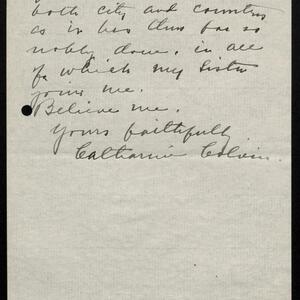 both city and country
as in has thus far so
nobly done, in all
of which my sister
joins me.
Believe me.
Yours faithfully
Catharine Colvin.